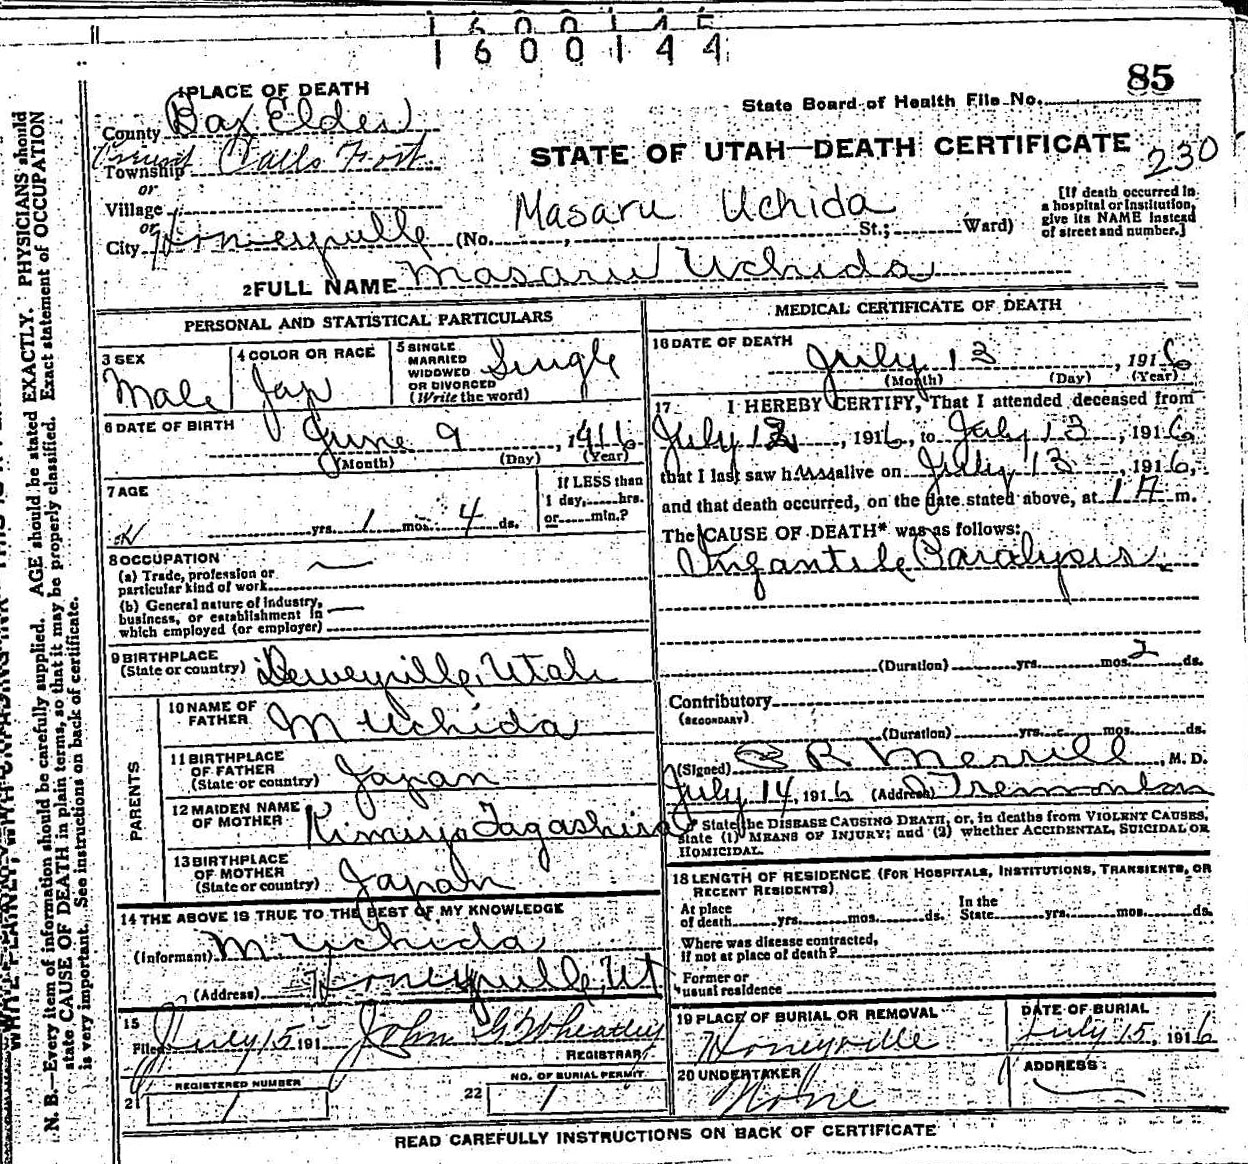 1600144
85
1 PLACE OF DEATH
State Board of Health File No.
County Box Elder
STATE OF UTAH—DEATH CERTIFICATE
230
Precinct Calls Fort
Township
or
Village
or
City Honeyville (No. , St.; Ward)
Masaru Uchida
[If death occurred in
a hospital or institution,
give its NAME instead
of street and number.]
2 FULL NAME Masaru Uchida
PERSONAL AND STATISTICAL PARTICULARS
3 SEX
Male
4 COLOR OR RACE
Jap
5 SINGLE
MARRIED
WIDOWED
OR DIVORCED
(Write the word)
Single
6 DATE OF BIRTH
June 9, 1916
(Month) (Day) (Year)
7 AGE
yrs. 1 mos. 4 ds.
If LESS than
1 day, hrs.
or min.?
8 OCCUPATION
(a) Trade, profession or
particular kind of work
(b) General nature of industry,
business, or establishment in
which employed (or employer)
9 BIRTHPLACE
(State or country) Deweyville, Utah
PARENTS
10 NAME OF
FATHER M Uchida
11 BIRTHPLACE
OF FATHER
(State or country) Japan
12 MAIDEN NAME
OF MOTHER Kimiyo Tagashira
13 BIRTHPLACE
OF MOTHER
(State or country) Japan
14 THE ABOVE IS TRUE TO THE BEST OF MY KNOWLEDGE
(Informant) M Uchida
(Address) Honeyville, Ut
15
Filed July 15 191 John G Wheatley
REGISTRAR
21 REGISTERED NUMBER
1
22 NO. OF BURIAL PERMIT
1
MEDICAL CERTIFICATE OF DEATH
16 DATE OF DEATH
July 13, 1916
(Month) (Day) (Year)
17 I HEREBY CERTIFY, That I attended deceased from
July 12, 1916, to July 13, 1916
that I last saw him alive on July 13, 1916,
and that death occurred, on the date stated above, at 1 A m.
The CAUSE OF DEATH* was as follows:
Infantile Paralysis
(Duration) yrs. mos. 2 ds.
Contributory
(SECONDARY)
(Duration) yrs. mos. ds.
(Signed) R Merrill, M. D.
July 14, 1916 (Address) Tremonton
* State the DISEASE CAUSING DEATH, or, in deaths from VIOLENT CAUSES,
state (1) MEANS OF INJURY; and (2) whether ACCIDENTAL, SUICIDAL OR
HOMICIDAL.
18 LENGTH OF RESIDENCE (FOR HOSPITALS, INSTITUTIONS, TRANSIENTS, OR
RECENT RESIDENTS)
At place
of death yrs. mos. ds.
In the
State yrs. mos. ds.
Where was disease contracted,
if not at place of death?
Former or
usual residence
19 PLACE OF BURIAL OR REMOVAL
Honeyville
DATE OF BURIAL
July 15, 1916
20 UNDERTAKER
None
ADDRESS
READ CAREFULLY INSTRUCTIONS ON BACK OF CERTIFICATE
N. B.—Every item of information should be carefully supplied. AGE should be stated EXACTLY. PHYSICIANS should
state CAUSE OF DEATH in plain terms, so that it may be properly classified. Exact statement of OCCUPATION
is very important. See instructions on back of certificate.